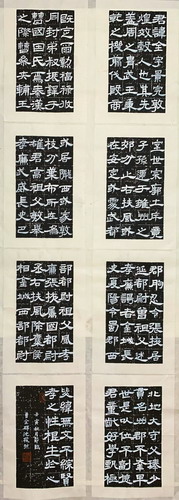 君諱全字景完敦
煌效穀人也其先
蓋周之胄武王秉
乾之機翦伐殷商
既定爾勳福祿攸
同封弟叔振鐸于
曹國因氏焉秦漢
之際曹參夾輔王
室世宗廓土斥竟
子孫遷于雍州之
郊分止右扶風或
在安定或處武都
或居隴西或家敦
煌枝分葉布所在
為雄君高祖父敏舉
孝廉武威長史巴
郡朐忍令張掖居
延都尉曾祖父述
孝廉謁者金城長
史夏陽令蜀郡西
部都尉祖父鳳孝
廉張掖屬國都尉
丞右扶風隃麋侯
相金城西部都尉
北地大守父琫少
貫名州郡不幸早
世是以位不副德
君童齔好學甄極
毖緯無文不綜賢
孝之性根生於心
曹全碑